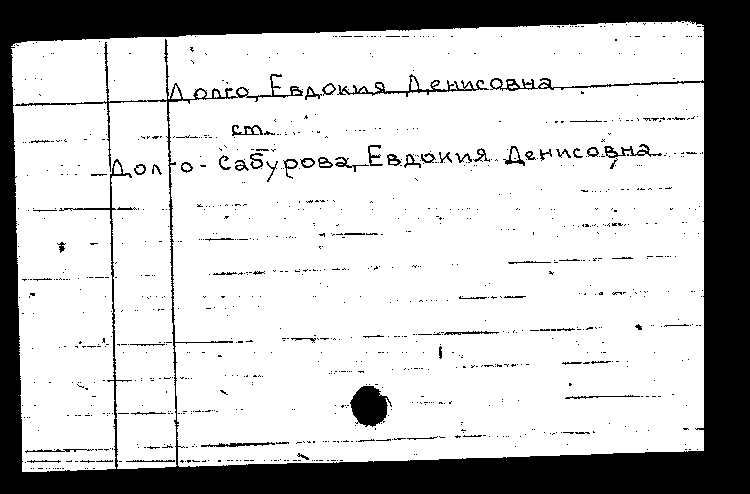 Долго, Евдокия Денисовна.
ст.
Долго-Сабурова, Евдокия Денисовна.